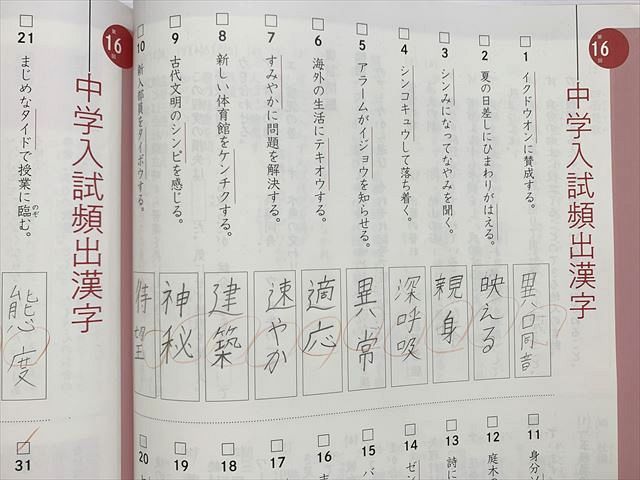 第16回
中学入試頻出漢字
1 イクドウオンに賛成する。
異口同音
2 夏の日差しにひまわりがはえる。
映える
3 シンみになってなやみを聞く。
親身
4 シンコキュウして落ち着く。
深呼吸
5 アラームがイジョウを知らせる。
異常
6 海外の生活にテキオウする。
適応
7 すみやかに問題を解決する。
速やか
8 新しい体育館をケンチクする。
建築
9 古代文明のシンピを感じる。
神秘
10 新入部員をタイボウする。
待望
11 身分ソ
12 庭木の
13 詩に
14 ゼン
15 バ
16
17
18
19
20
第16回
中学入試頻出漢字
21 まじめなタイドで授業に臨む。
のぞ
態度
31